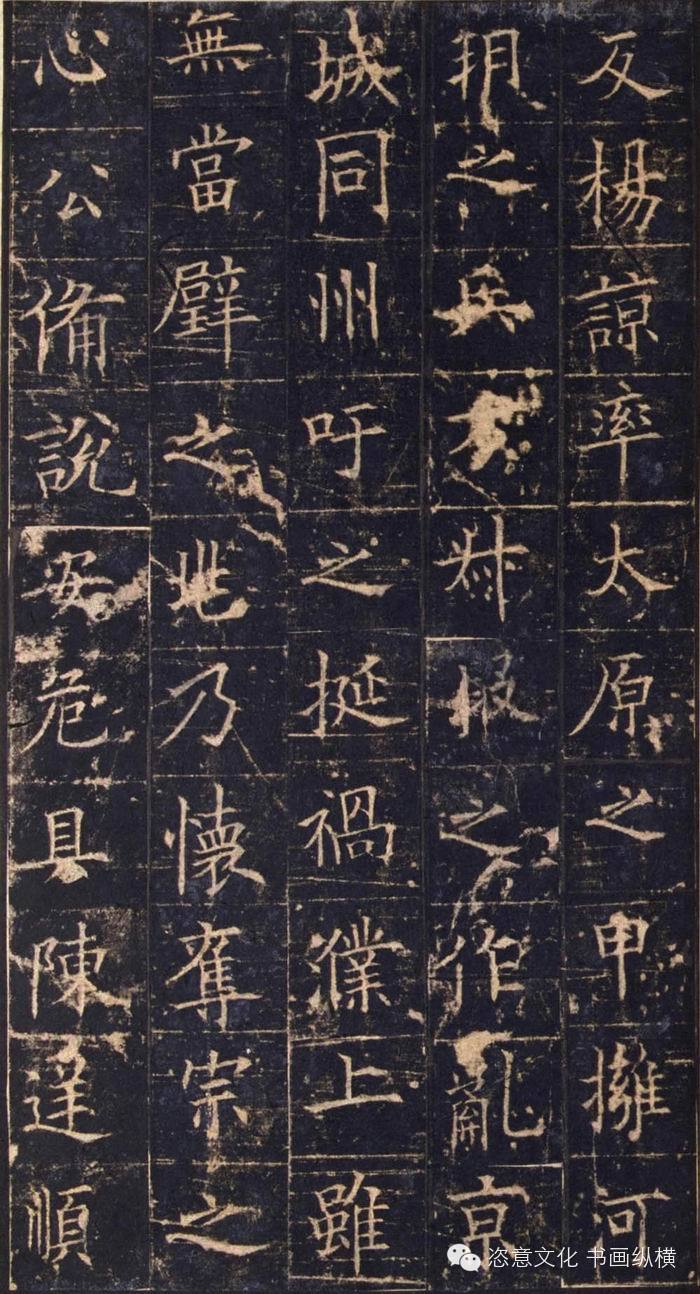 反楊諒率太原之甲擁河
朔之兵方叔段之作亂京
城同州吁之挺禍濮上雖
無當璧之兆乃懷奪宗之
心公俻說安危具陳逆順
恣意文化 书画纵横